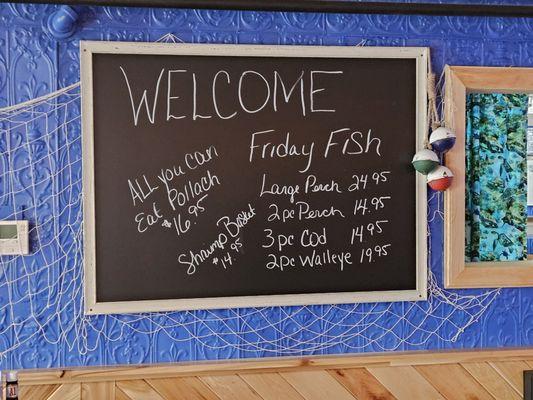 WELCOME
ALL you CAN
Eat Pollach
$16.95
Shrimp Basket
$14.95
Friday Fish
Large Perch 24.95
2pc Perch 14.95
3pc Cod 14.95
2pc Walleye 19.95